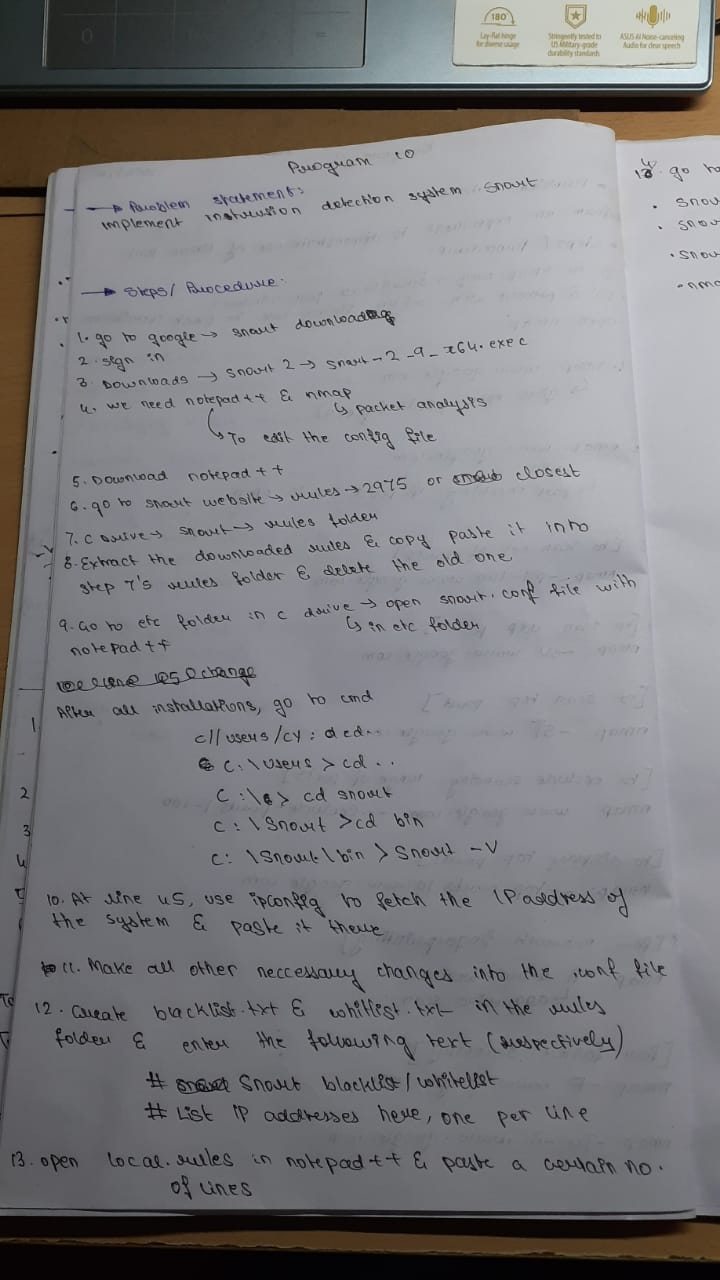 180°
Lay-flat hinge
for diverse usage
Stringently tested to
US Military-grade
durability standards
ASUS AI Noise-canceling
Audio for clear speech
Program 10
→ Problem statement:
Implement instrusion detection system snort
→ Steps / Procedure:
1. go to google → snort download
2. sign in
3. Downloads → snort 2 → snort-2-9-x64.exec
4. we need notepad++ & nmap
↳ packet analysis
↳ To edit the config file
5. Download notepad ++
6. go to snort website → rules → 2975 or closest
7. C drive → snort → rules folder
8. Extract the downloaded rules & copy paste it into
step 7's rules folder & delete the old one
9. Go to etc folder in c drive → open snort.conf file with
↳ in etc folder
notepad ++
After all installations, go to cmd
c//users/cy: cd..
C:\users > cd..
C:\> cd snort
C:\Snort >cd bin
C:\Snort\bin > Snort -V
10. At line 45, use ipconfig to fetch the IP address of
the system & paste it there
11. Make all other neccessary changes into the .conf file
12. Create blacklist.txt & whitlist.txt in the rules
folder & enter the following text (respectively)
# Snort blacklist/whitelist
# List IP addresses here, one per line
13. open local.rules in notepad++ & paste a certain no.
of lines
go to